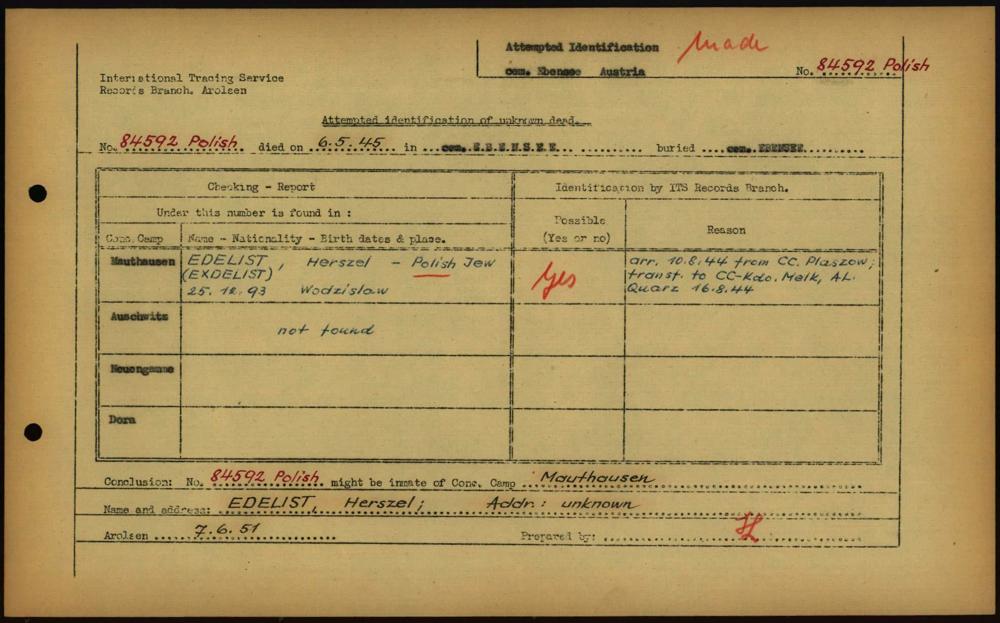 Attempted Identification made
cem. Ebensee Austria
No. 84592 Polish
International Tracing Service
Records Branch. Arolsen
Attempted identification of unknown dead.
No. 84592 Polish died on 6.5.45 in cem. EBENSEE buried cem. EBENSEE
Checking - Report
Identification by ITS Records Branch.
Under this number is found in :
Possible
(Yes or no)
Reason
Conc. Camp
Name - Nationality - Birth dates & place.
Mauthausen
EDELIST, Herszel - Polish Jew
(EXDELIST)
25. 12. 93 Wodzislaw
Yes
arr. 10.8.44 from CC. Plaszow;
transf. to CC-Kdo. Melk, AL.
Quarz 16.8.44
Auschwitz
not found
Neuengamme
Dora
Conclusion: No. 84592 Polish. might be inmate of Conc. Camp Mauthausen
Name and address: EDELIST, Herszel; Addr.: unknown
Arolsen 7.6.51
Prepared by: